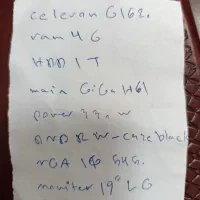 celeron G1620
ram 4 G
HDD 1 T
main GiGa H61
power 330 w
DVD R W - case black
VGA 1G
moniter 19" LG